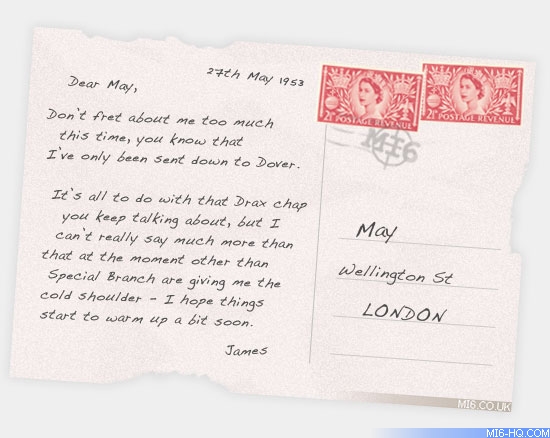 27th May 1953
Dear May,
Don't fret about me too much
this time, you know that
I've only been sent down to Dover.
It's all to do with that Drax chap
you keep talking about, but I
can't really say much more than
that at the moment other than
Special Branch are giving me the
cold shoulder - I hope things
start to warm up a bit soon.
James
2½ᴰ POSTAGE REVENUE
2½ᴰ POSTAGE REVENUE
MI6
May
Wellington St
LONDON
MI6.CO.UK
MI6-HQ.COM